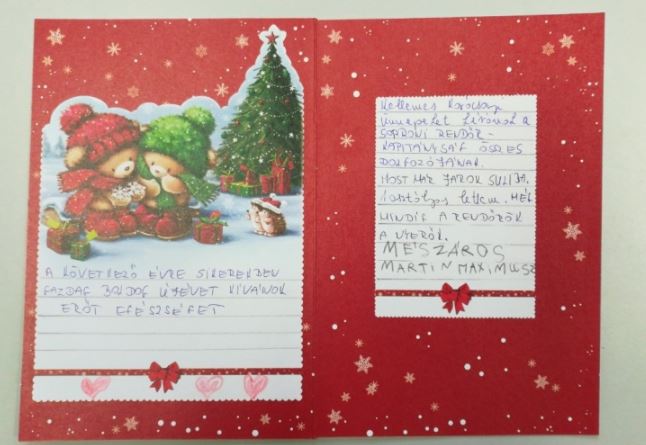 A KÖVETKEZŐ ÉVRE SIKEREKBEN
GAZDAG BOLDOG ÚJÉVET KÍVÁNOK
ERŐT EGÉSZSÉGET
Kellemes Karácsonyi
Ünnepeket kívánok a
SOPRONI RENDŐR-
KAPITÁNYSÁG ÖSSZES
DOLGOZÓJÁNAK.
MOST MÁR JÁROK SULIBA,
osztályos lettem. MÉG
MINDIG A RENDŐRÖK
A MENŐK.
MÉSZÁROS
MARTIN MAXIMUSZ